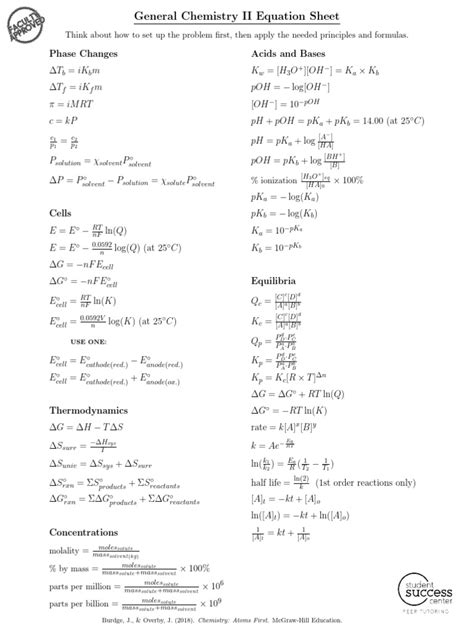 FACULTY APPROVED
General Chemistry II Equation Sheet
Think about how to set up the problem first, then apply the needed principles and formulas.
Phase Changes
ΔT_b = iK_bm
ΔT_f = iK_fm
π = iMRT
c = kP
c₁/p₁ = c₂/p₂
P_solution = χ_solvent P°_solvent
ΔP = P°_solvent − P_solution = χ_solute P°_solvent
Cells
E = E° − RT/nF ln(Q)
E = E° − 0.0592/n log(Q) (at 25°C)
ΔG = −nFE_cell
ΔG° = −nFE°_cell
E°_cell = RT/nF ln(K)
E°_cell = 0.0592V/n log(K) (at 25°C)
USE ONE:
E°_cell = E°_cathode(red.) − E°_anode(red.)
E°_cell = E°_cathode(red.) + E°_anode(ox.)
Thermodynamics
ΔG = ΔH − TΔS
ΔS_surr = −ΔH_sys/T
ΔS_univ = ΔS_sys + ΔS_surr
ΔS°_rxn = ΣS°_products + ΣS°_reactants
ΔG°_rxn = ΣΔG°_products + ΣΔG°_reactants
Concentrations
molality = moles_solute/mass_solvent(kg)
% by mass = moles_solute/mass_solute+mass_solvent × 100%
parts per million = moles_solute/mass_solute+mass_solvent × 10⁶
parts per billion = moles_solute/mass_solute+mass_solvent × 10⁹
Acids and Bases
K_w = [H₃O⁺][OH⁻] = K_a × K_b
pOH = − log[OH⁻]
[OH⁻] = 10^−pOH
pH + pOH = pK_a + pK_b = 14.00 (at 25°C)
pH = pK_a + log [A⁻]/[HA]
pOH = pK_b + log [BH⁺]/[B]
% ionization [H₃O⁺]_eq/[HA]_o × 100%
pK_a = − log(K_a)
pK_b = − log(K_b)
K_a = 10^−pK_a
K_b = 10^−pK_b
Equilibria
Q_c = [C]^c[D]^d/[A]^a[B]^b
K_c = [C]^c[D]^d/[A]^a[B]^b
Q_p =
K_p =
K_p = K_c[R × T]^Δn
ΔG = ΔG° + RT ln(Q)
ΔG° = −RT ln(K)
rate = k[A]^x[B]^y
k = Ae^−Ea/RT
ln(k₁/k₂) = E_a/R (1/T₂ − 1/T₁)
half life = ln(2)/k (1st order reactions only)
[A]_t = −kt + [A]_o
ln([A]_t) = −kt + ln([A]_o)
1/[A]_t = kt + 1/[A]_o
student
success
center
PEER TUTORING
Burdge, J., & Overby, J. (2018). Chemistry: Atoms First. McGraw-Hill Education.